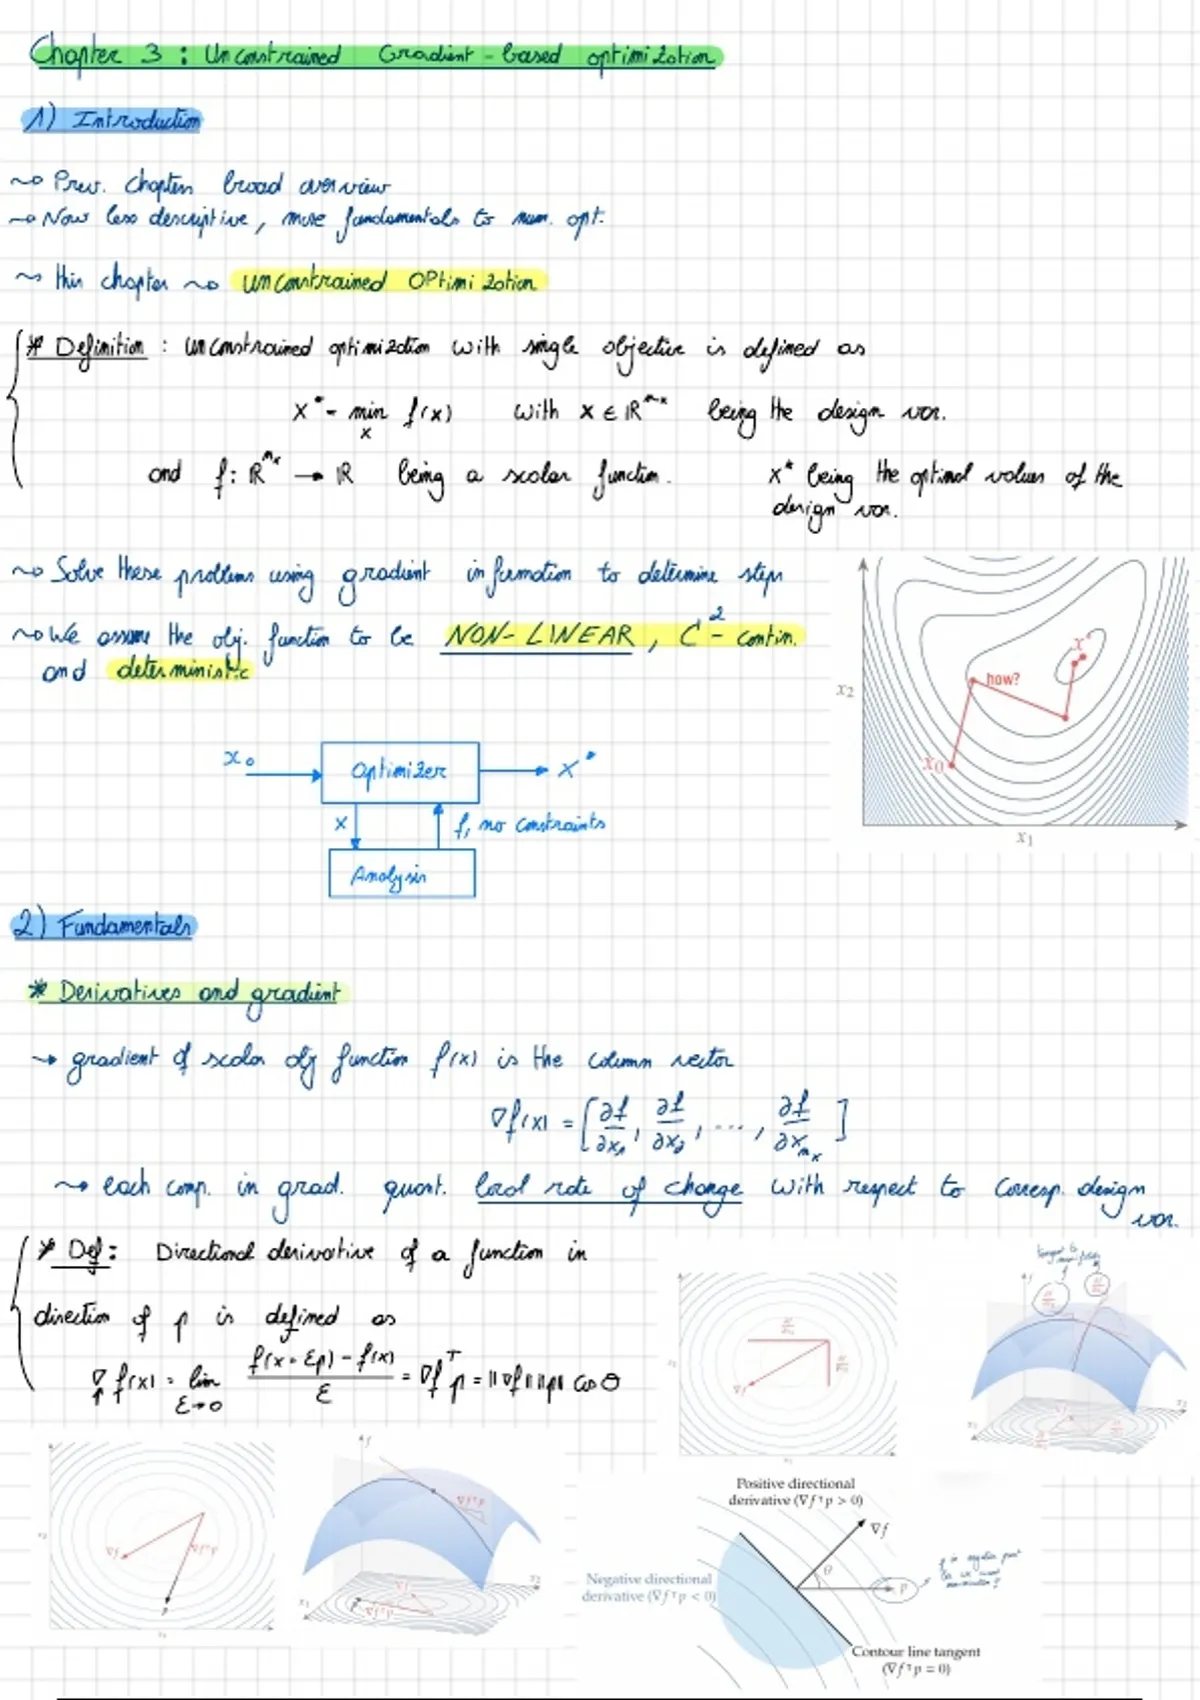 Chapter 3 : Unconstrained Gradient-based optimization
1) Introduction
~> Prev. chapter broad overview
~> Now less descriptive, more fundamentals to num. opt.
~> this chapter ~> unconstrained OPtimization
* Definition : unconstrained optimization with single objective is defined as
x* = min f(x) with x ∈ ℝ^nx being the design var.
x
and f: ℝ^nx → ℝ being a scalar function. x* being the optimal values of the
design var.
~> Solve these problems using gradient information to determine steps
~> We assume the obj. function to be NON-LINEAR, C² - contin.
and deterministic
x₂
x*
how?
x₀
x₁
x₀ Optimizer x*
x f, no constraints
Analysis
2) Fundamentals
* Derivatives and gradient
→ gradient of scalar obj function f(x) is the column vector
∇f(x) = [∂f/∂x₁, ∂f/∂x₂, ..., ∂f/∂x_nx]
~> each comp. in grad. quant. local rate of change with respect to corresp. design
var.
* Def : Directional derivative of a function in
direction of p is defined as
∇p f(x) = lim ε→0 f(x + εp) - f(x) / ε = ∇f^T p = ||∇f|| ||p|| cos θ
tangent to
∇f
f
∇f
∇f⊤p
p
f
∇f⊤p
∇f
p
∇f⊤p
x₁
x₂
Positive directional
derivative (∇f⊤p > 0)
∇f
θ
p
Negative directional
derivative (∇f⊤p < 0)
Contour line tangent
(∇f⊤p = 0)